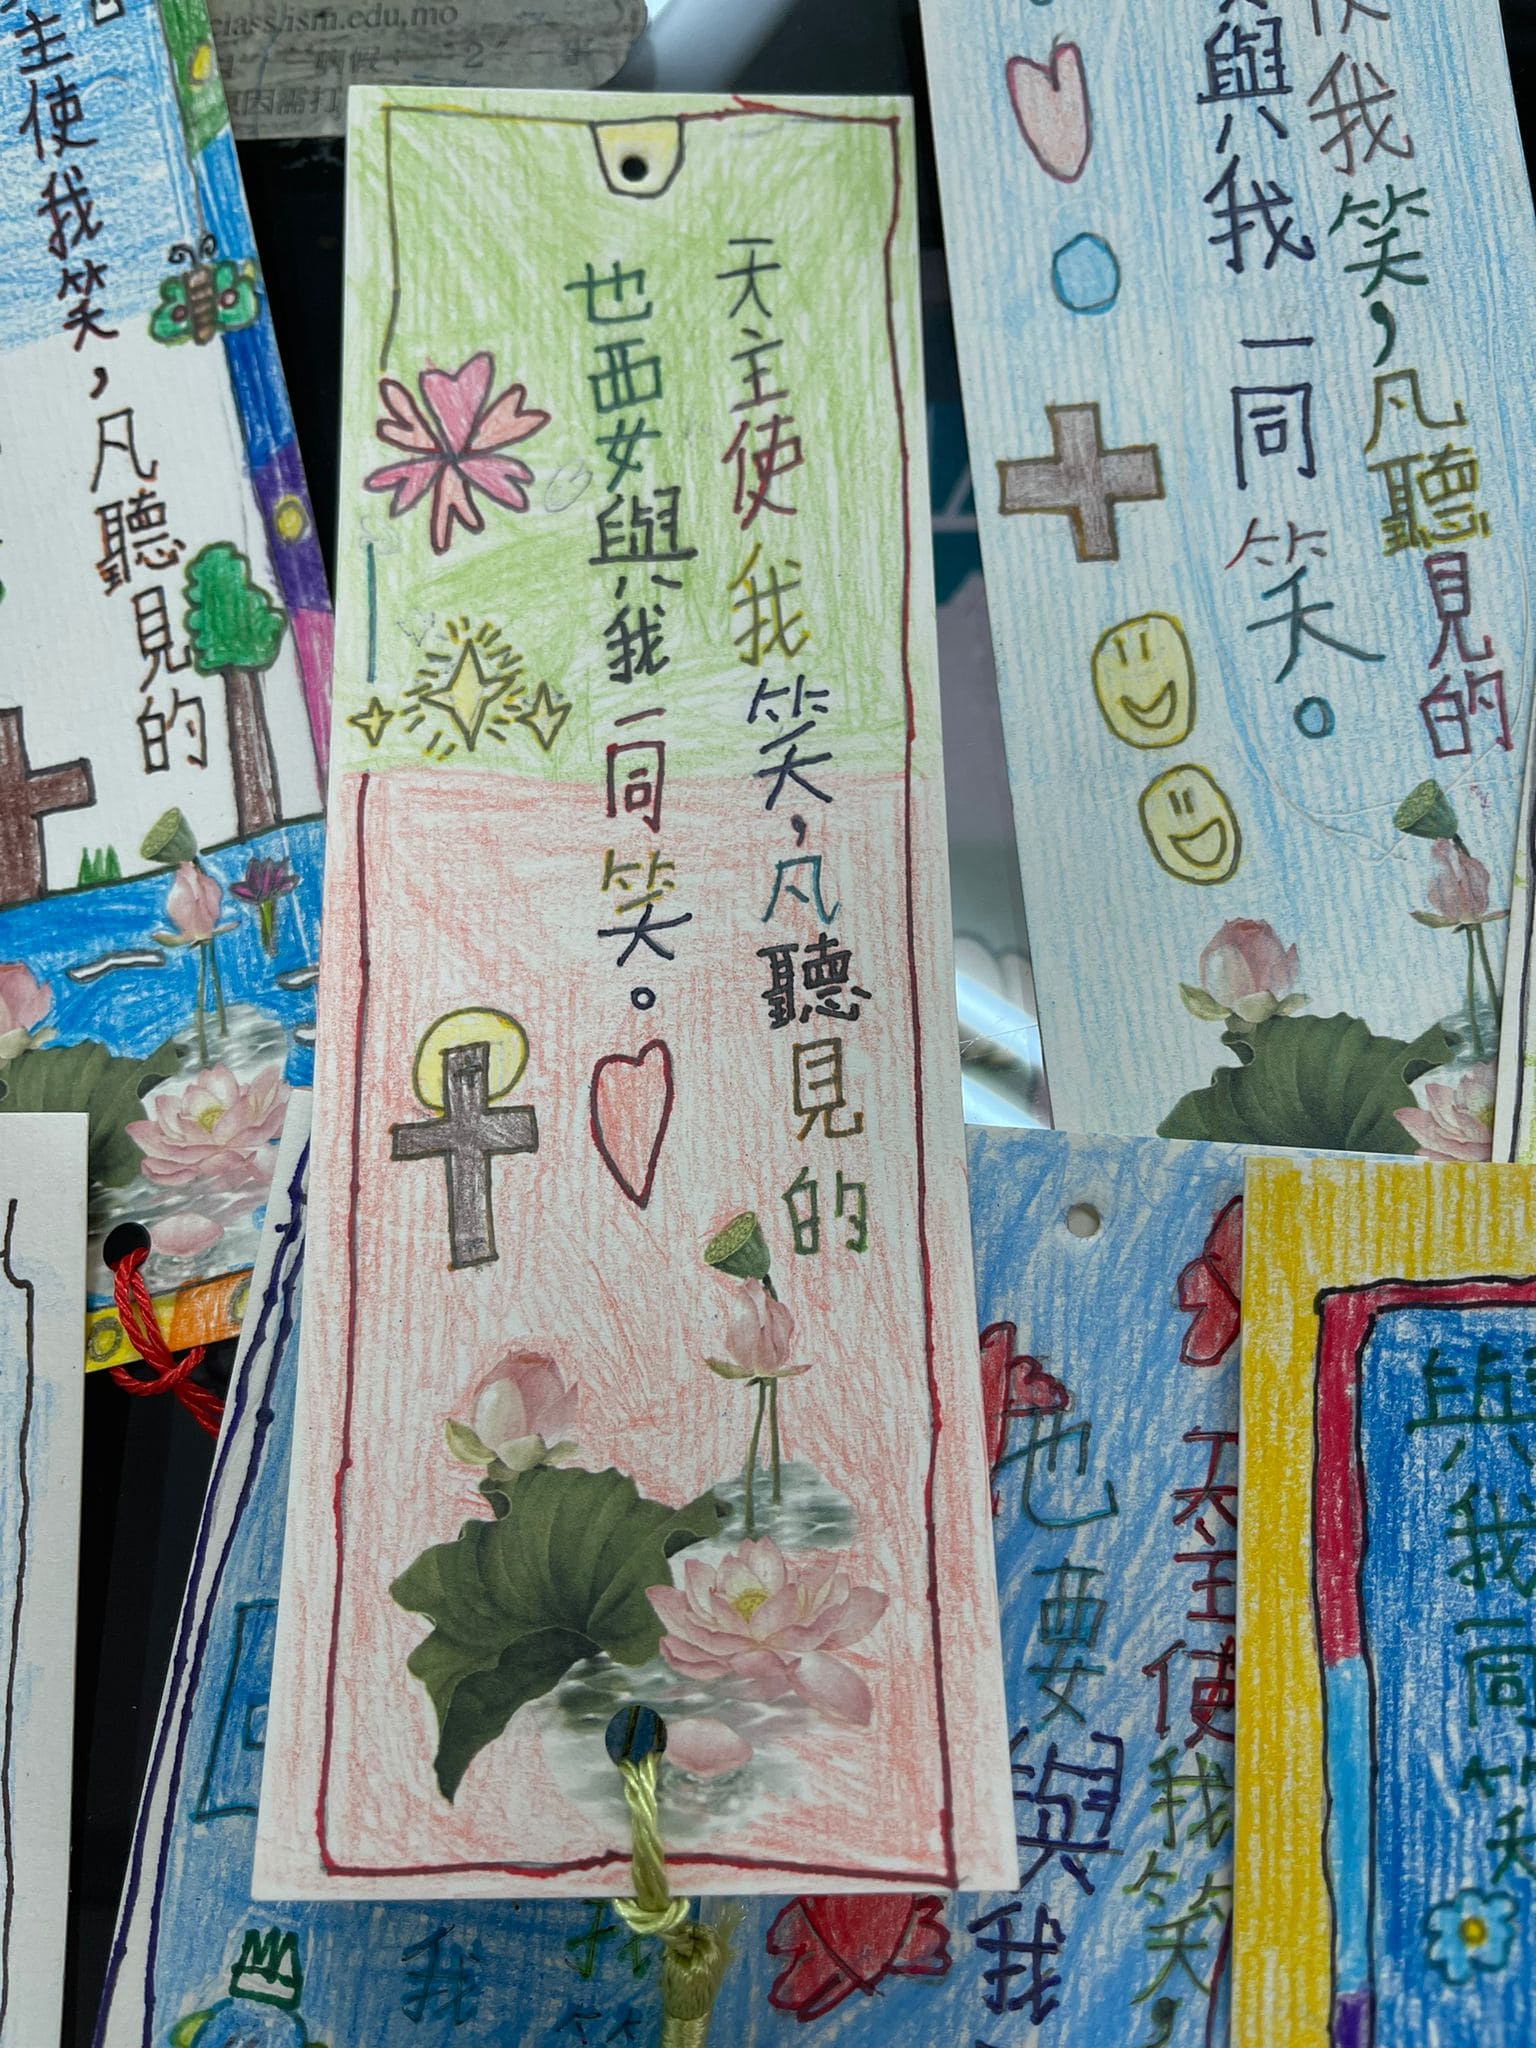 主使我笑，凡聽見的
天主使我笑，凡聽見的
也要與我一同笑。
使我笑，凡聽見的
與我一同笑。
天主使我笑，
也要與我
我
與我一同笑